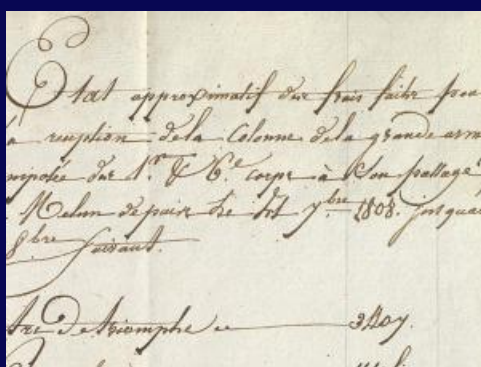 Etat approximatif des frais faits pou
a reception de la Colonne de la grande arm
mposée des 1.er & 6.e corps à Son passage
Melun depuis le 7bre 1808. jusqu'a
8bre Suivant.
Arc De triomphe